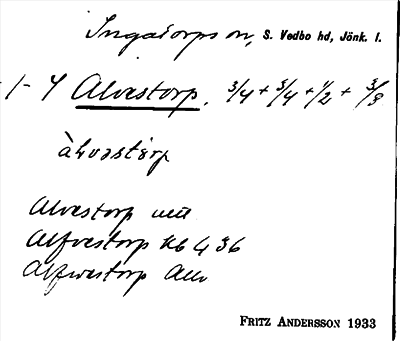 Ingatorps sn, S. Vedbo hd, Jönk. l.
1-4 Alvestorp, 3/4 + 3/4 + 1/2 + 3/8
àlvastòrp
Alvestorp
Alfvestorp Kb 436
Alfvestorp
FRITZ ANDERSSON 1933